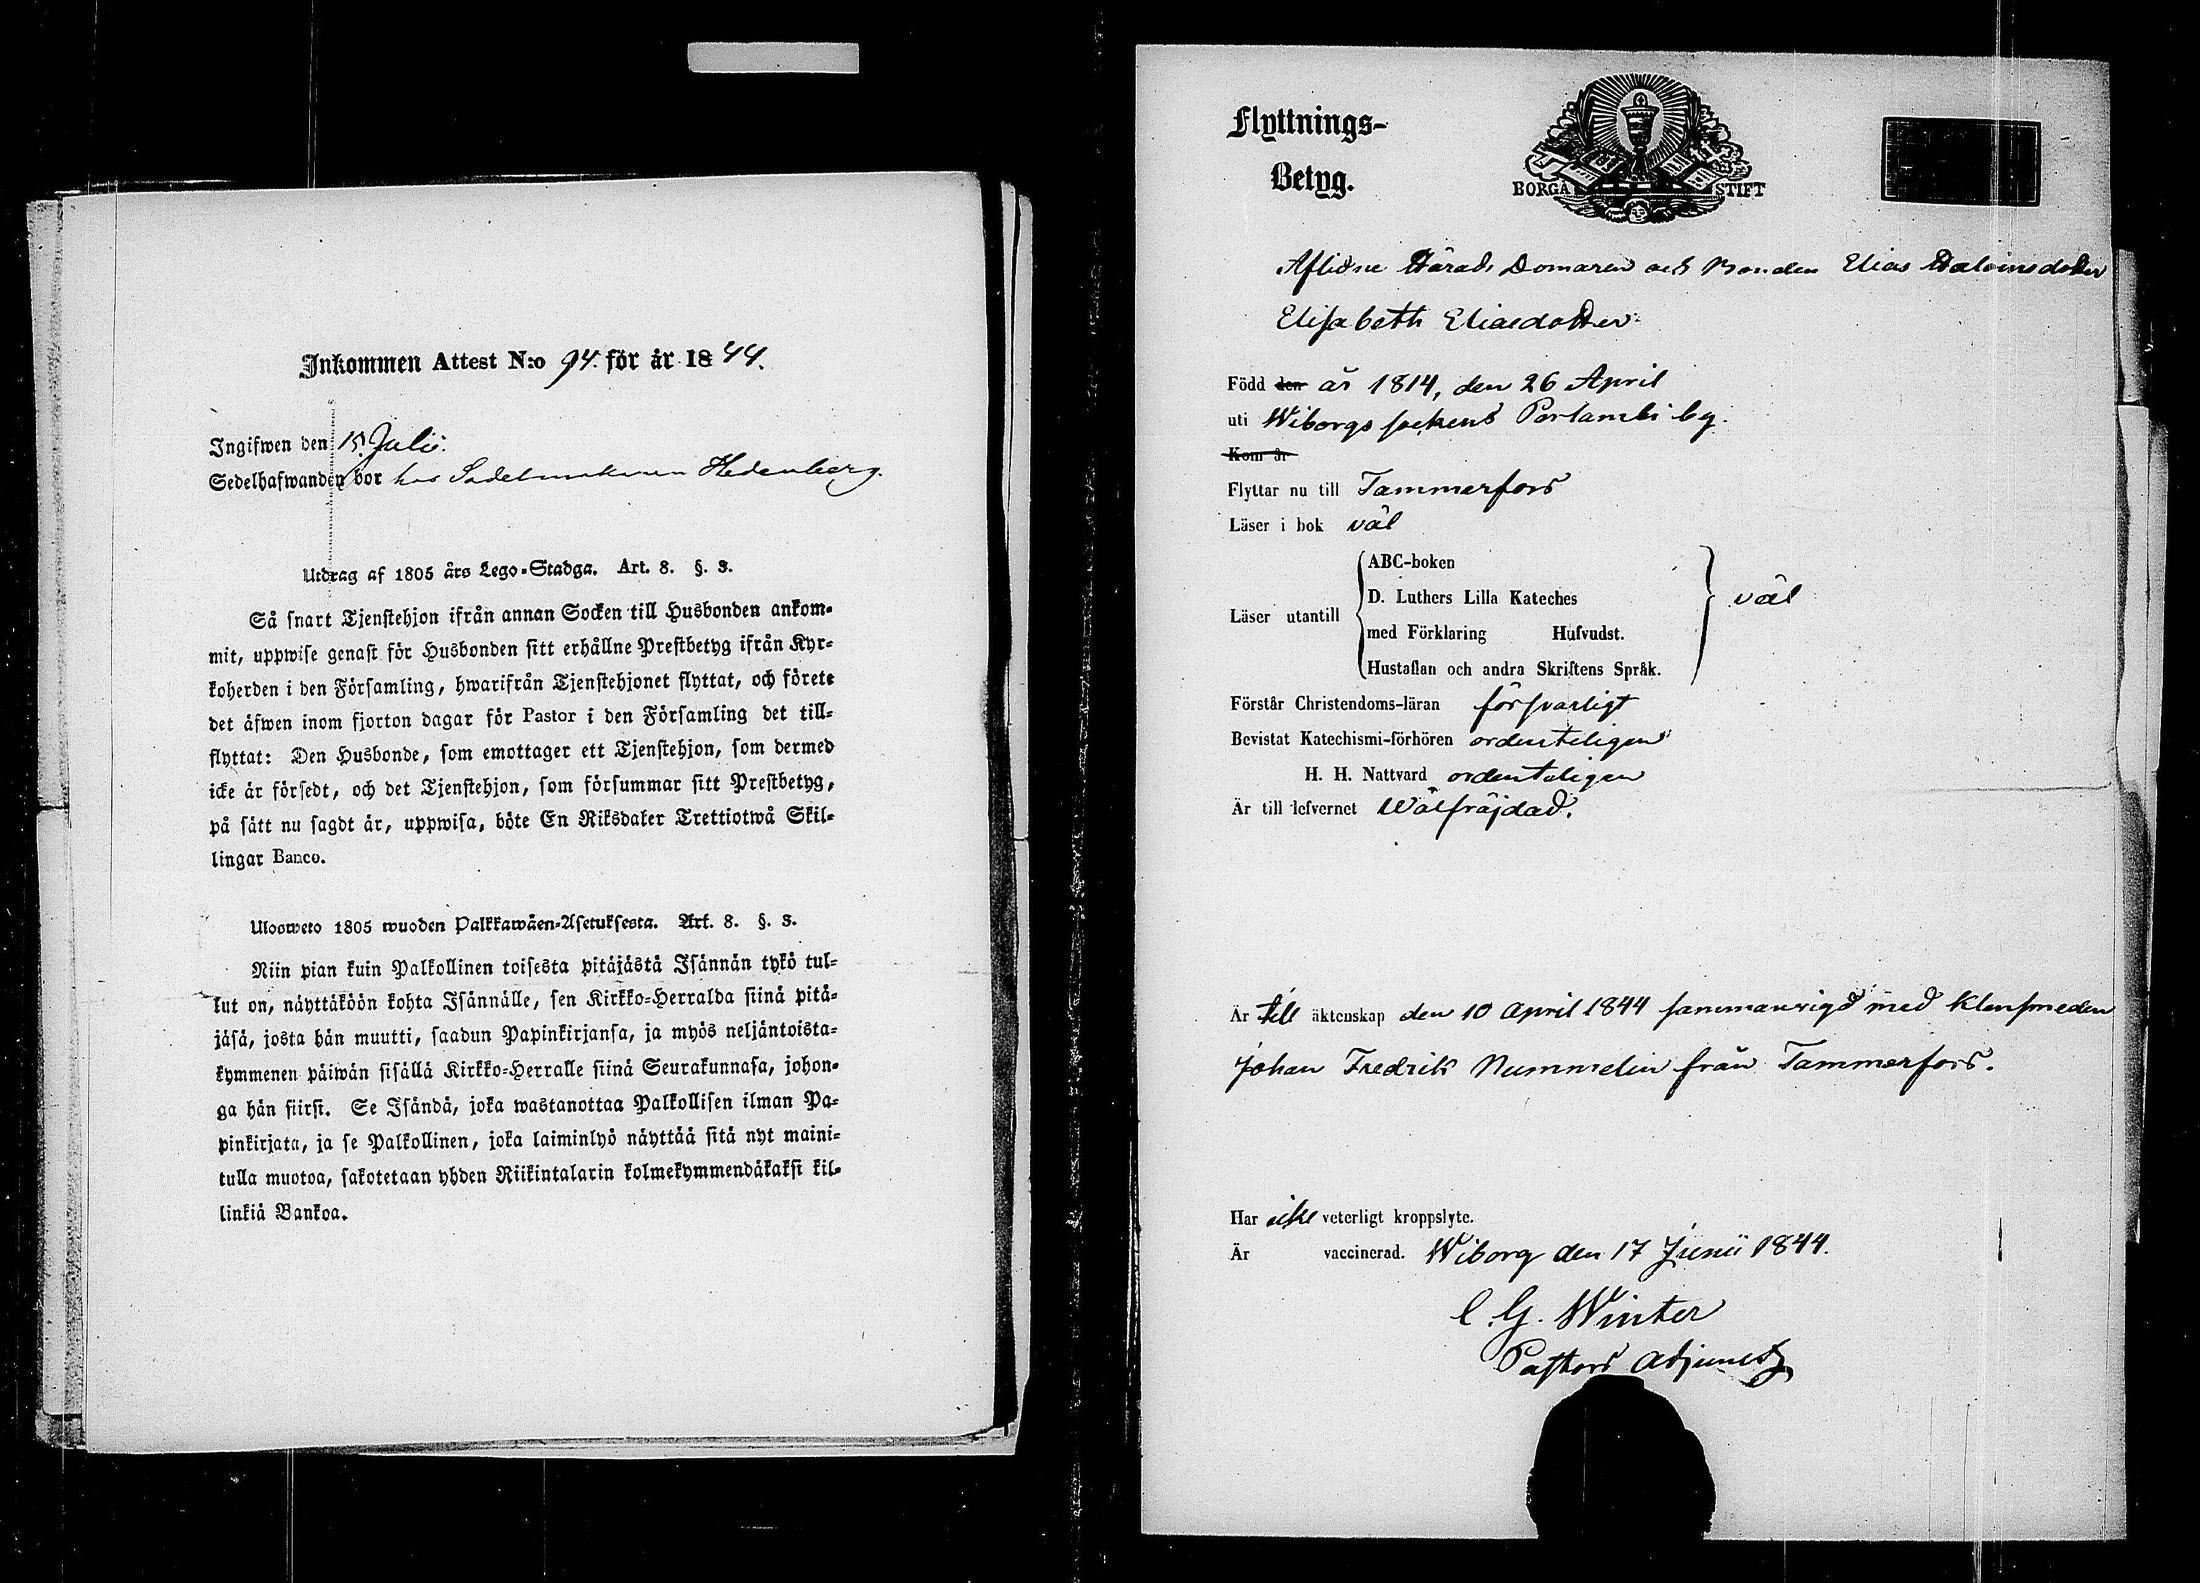 Inkommen Attest N:o 94. för år 1844.
Ingifwen den 15. Julii.
Sedelhafwanden bor hos Sadelmakaren Hedenberg.
Utdrag af 1805 års Lego-Stadga. Art. 8. §. 3.
Så snart Tjenstehjon ifrån annan Socken till Husbonden ankom-
mit, uppwise genast för Husbonden sitt erhållne Prestbetyg ifrån Kyr-
koherden i den Församling, hwarifrån Tjenstehjonet flyttat, och förete
det äfwen inom fjorton dagar för Pastor i den Församling det till-
flyttat: Den Husbonde, som emottager ett Tjenstehjon, som dermed
icke är försedt, och det Tjenstehjon, som försummar sitt Prestbetyg,
på sätt nu sagdt är, uppwisa, böte En Riksdaler Trettiotwå Skil-
lingar Banco.
Ulosweto 1805 wuoden Palkkawäen-Asetuksesta. Art. 8. §. 3.
Niin pian kuin Palkollinen toisesta pitäjästä Isännän tykö tul-
lut on, näyttäköön kohta Isännälle, sen Kirkko-Herralda siinä pitä-
jäsä, josta hän muutti, saadun Papinkirjansa, ja myös neljäntoista-
kymmenen päiwän sisällä Kirkko-Herralle siinä Seurakunnasa, johon-
ga hän siirsi. Se Isändä, joka wastanottaa Palkollisen ilman Pa-
pinkirjata, ja se Palkollinen, joka laiminlyö näyttää sitä nyt maini-
tulla muotoa, sakotetaan yhden Riikintalarin kolmekymmendäkaksi kil-
linkiä Bankoa.
Flyttnings-
Betyg.
BORGÅ STIFT
Aflidne Härads Domaren och Bonden Elias
Elisabeth Eliaedotter
Född den år 1814, den 26 April
uti Wiborgs sockens by.
Kom år
Flyttar nu till Tammerfors
Läser i bok väl
Läser utantill
ABC-boken
D. Luthers Lilla Kateches
med Förklaring Hufvudst.
Hustaflan och andra Skriftens Språk.
väl
Förstår Christendoms-läran försvarligt
Bevistat Katechismi-förhören ordenteligen
H. H. Nattvard ordenteligen
Är till lefvernet Wälfräjdad.
Är till äktenskap den 10 April 1844 sammanvigd med Klensmeden
Johan Fredrik Nummelin från Tammerfors.
Har icke veterligt kroppslyte.
Är vaccinerad. Wiborg den 17 Junii 1844.
C. G. Winter
Pastors Adjunct